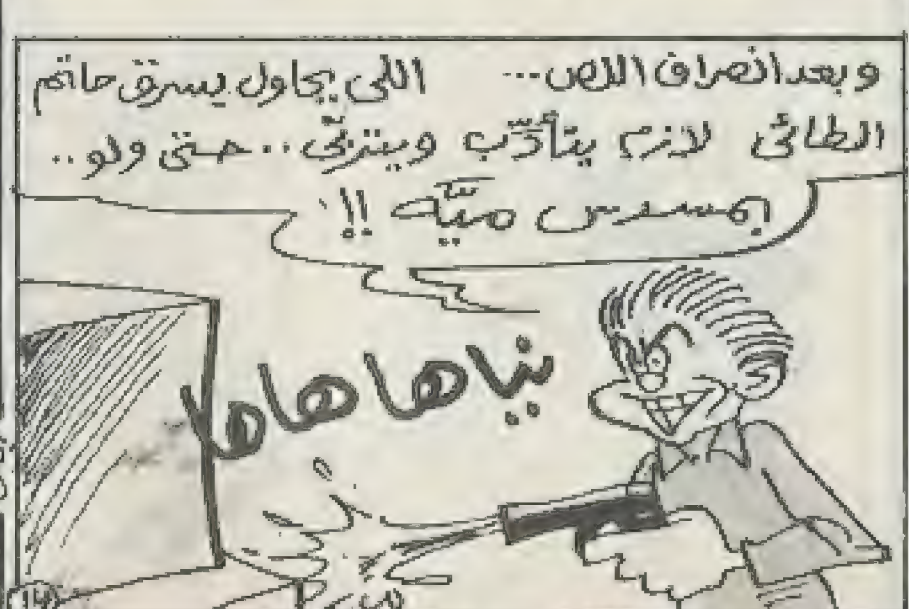 وبعد انصراف اللص... اللى يحاول يسرق حاتم
الطائى لازم يتأدّب ويتربّى.. حتى ولو..
بمسدس ميّه !!
نياها هاها